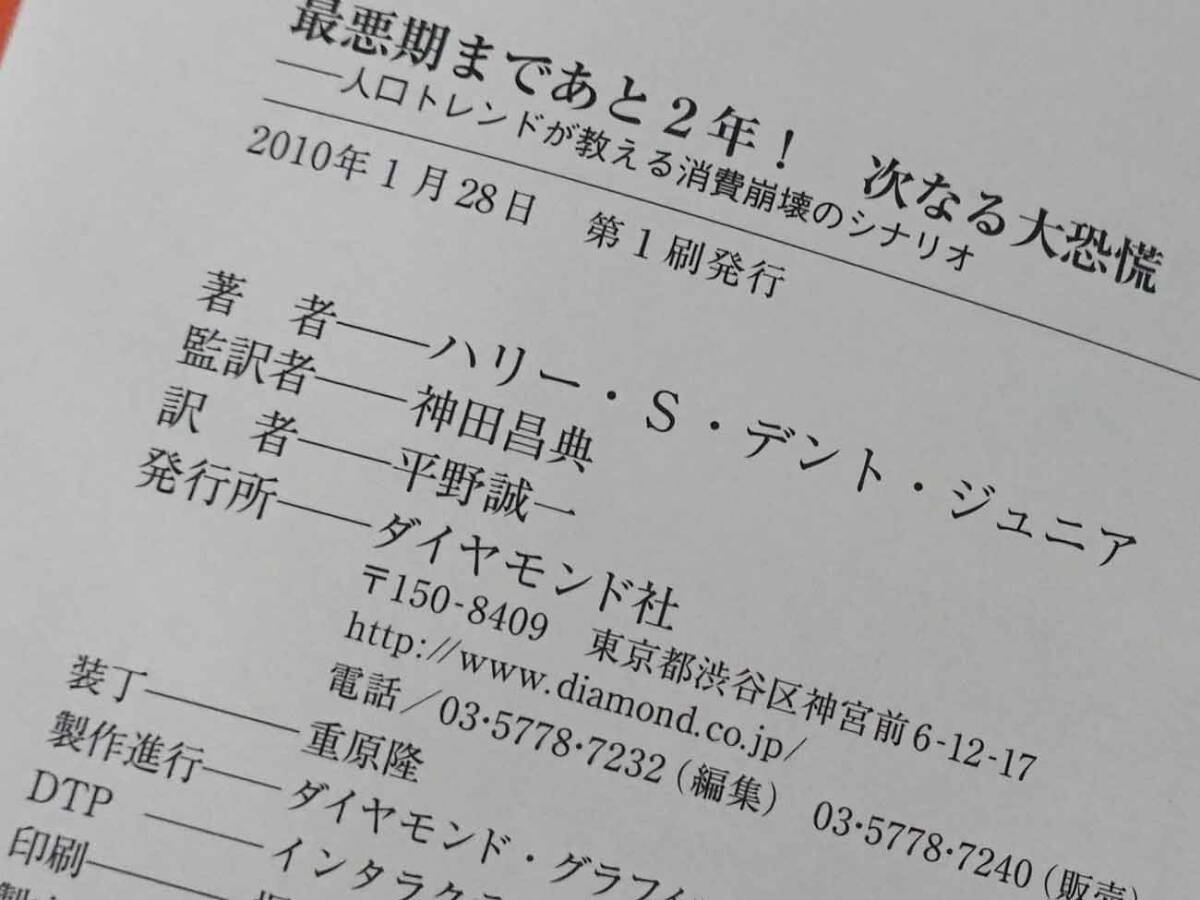 最悪期まであと2年! 次なる大恐慌
――人口トレンドが教える消費崩壊のシナリオ
2010年1月28日 第1刷発行
著 者――ハリー・S・デント・ジュニア
監訳者――神田昌典
訳 者――平野誠一
発行所――ダイヤモンド社
〒150-8409 東京都渋谷区神宮前6-12-17
http://www.diamond.co.jp/
電話/03・5778・7232(編集) 03・5778・7240(販売)
装丁――重原隆
製作進行――ダイヤモンド・グラフィ
DTP――インタラク
印刷――